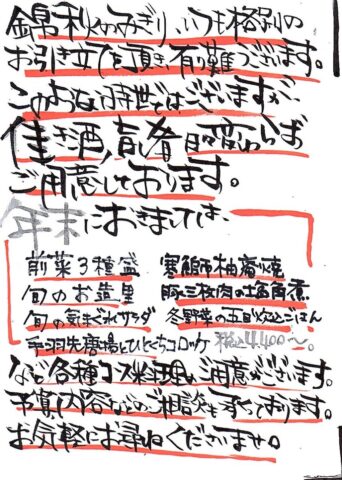 錦秋のみぎり、いつも格別の
お引き立てを頂き有難うございます。
このような時世ではございますが、
佳き酒、旨肴日々変わらず
ご用意しております。
年末におきましては、
前菜3種盛 寒鰤柚庵焼
旬のお造里 豚三枚肉の角煮
旬の気まぐれサラダ 冬野菜の五目炊込ごはん
手羽先唐揚とひとくちコロッケ 税込4,400〜。
など各種コース料理もご用意がございます。
予算、内容などのご相談も承っております。
お気軽にお尋ねくださいませ。